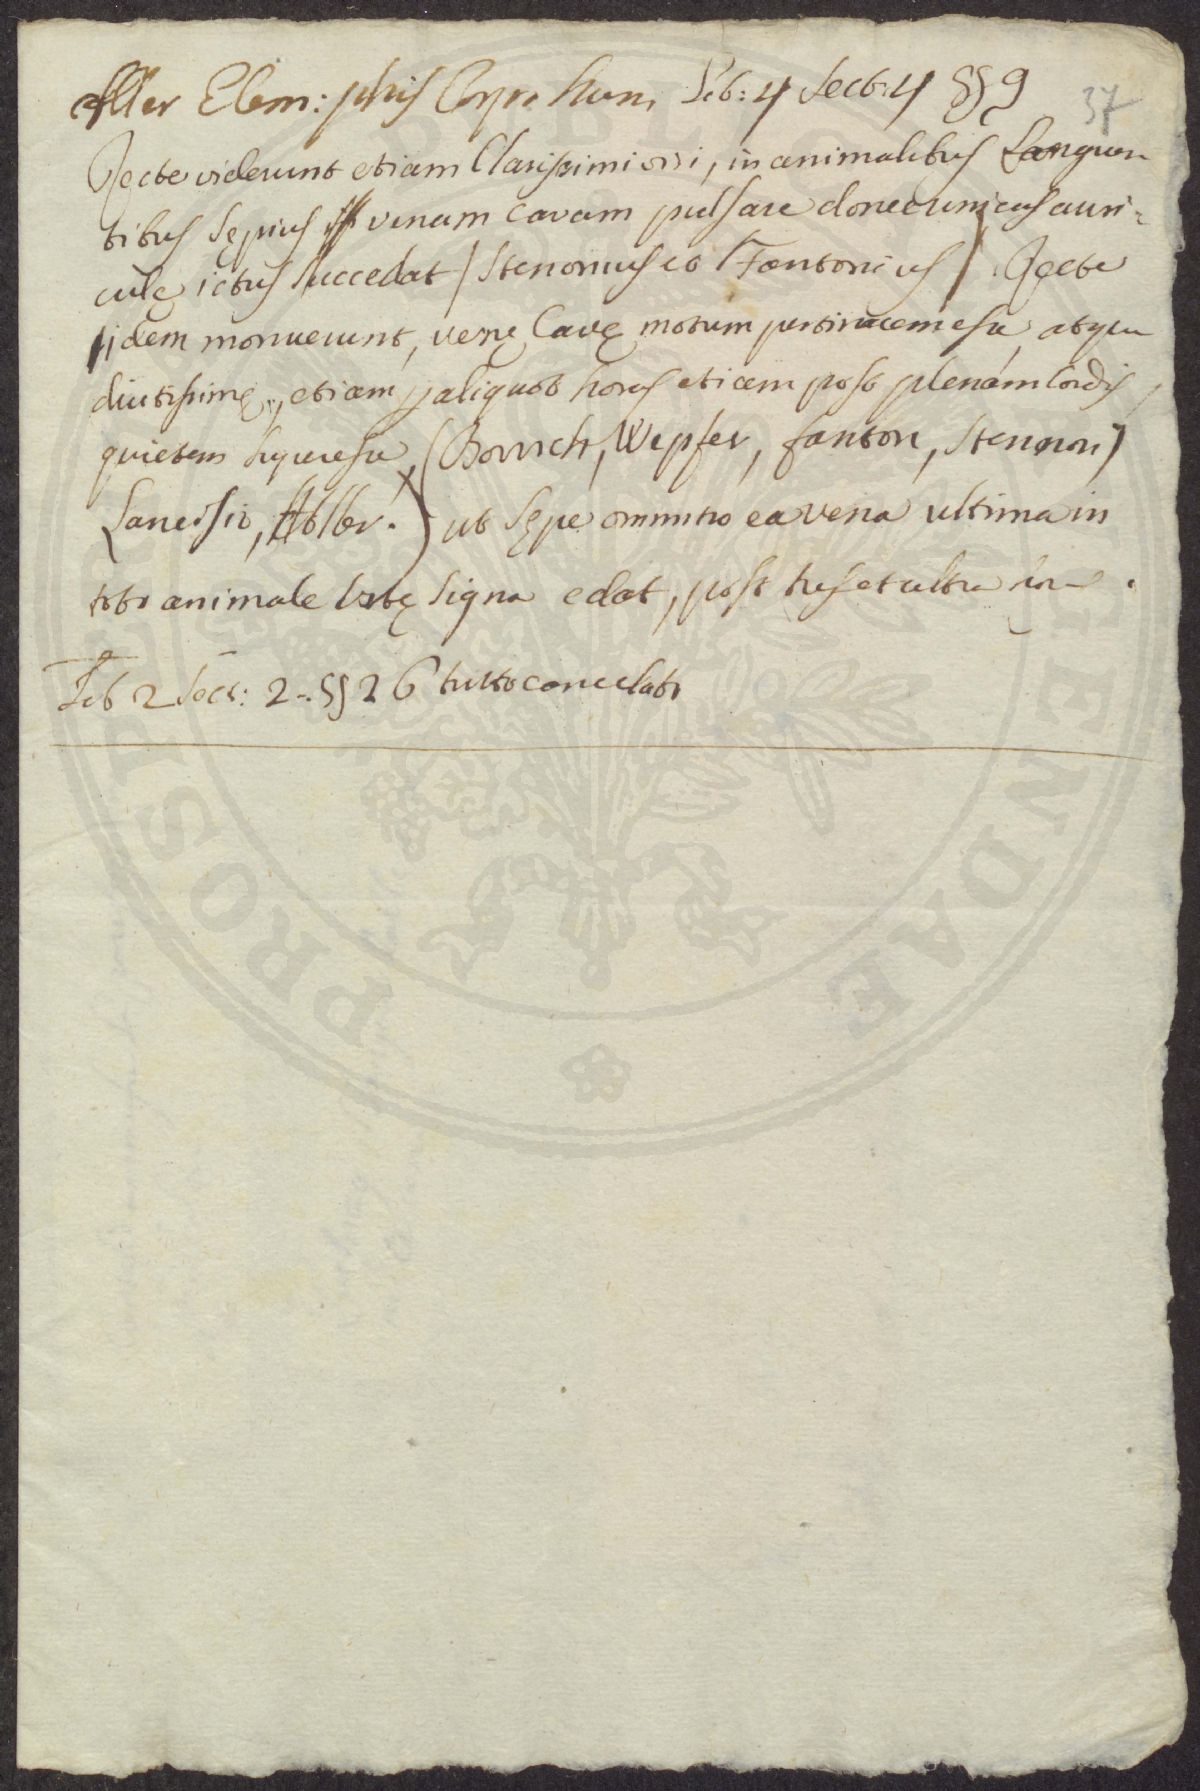 37
Aller Elem: phis Corp. hum. Lib: 4 Sect: 4 §§ 9
Recte viderunt etiam Clarissimi viri, in animalibus Languen
tibus sępius venam cavam pulsare donec unicus auri-
culę ictus succedat (Stenonius et Fantonius). Recte
iidem monuerunt, venę Cavę motum pertinacem esse, atque
diutissimę, etiam aliquot horas etiam post plenam Cordis,
quietem superesse, (Borrich, Wepfer, fanton, Stennon)
Lancisio, Atlbr.) ut sępe omnino ea vena ultima in
toto animale vitę signa edat, post tres et ultra
Lib 2 Sect: 2 - §§ 26 tutto cancelato
PROSPICIENDAE